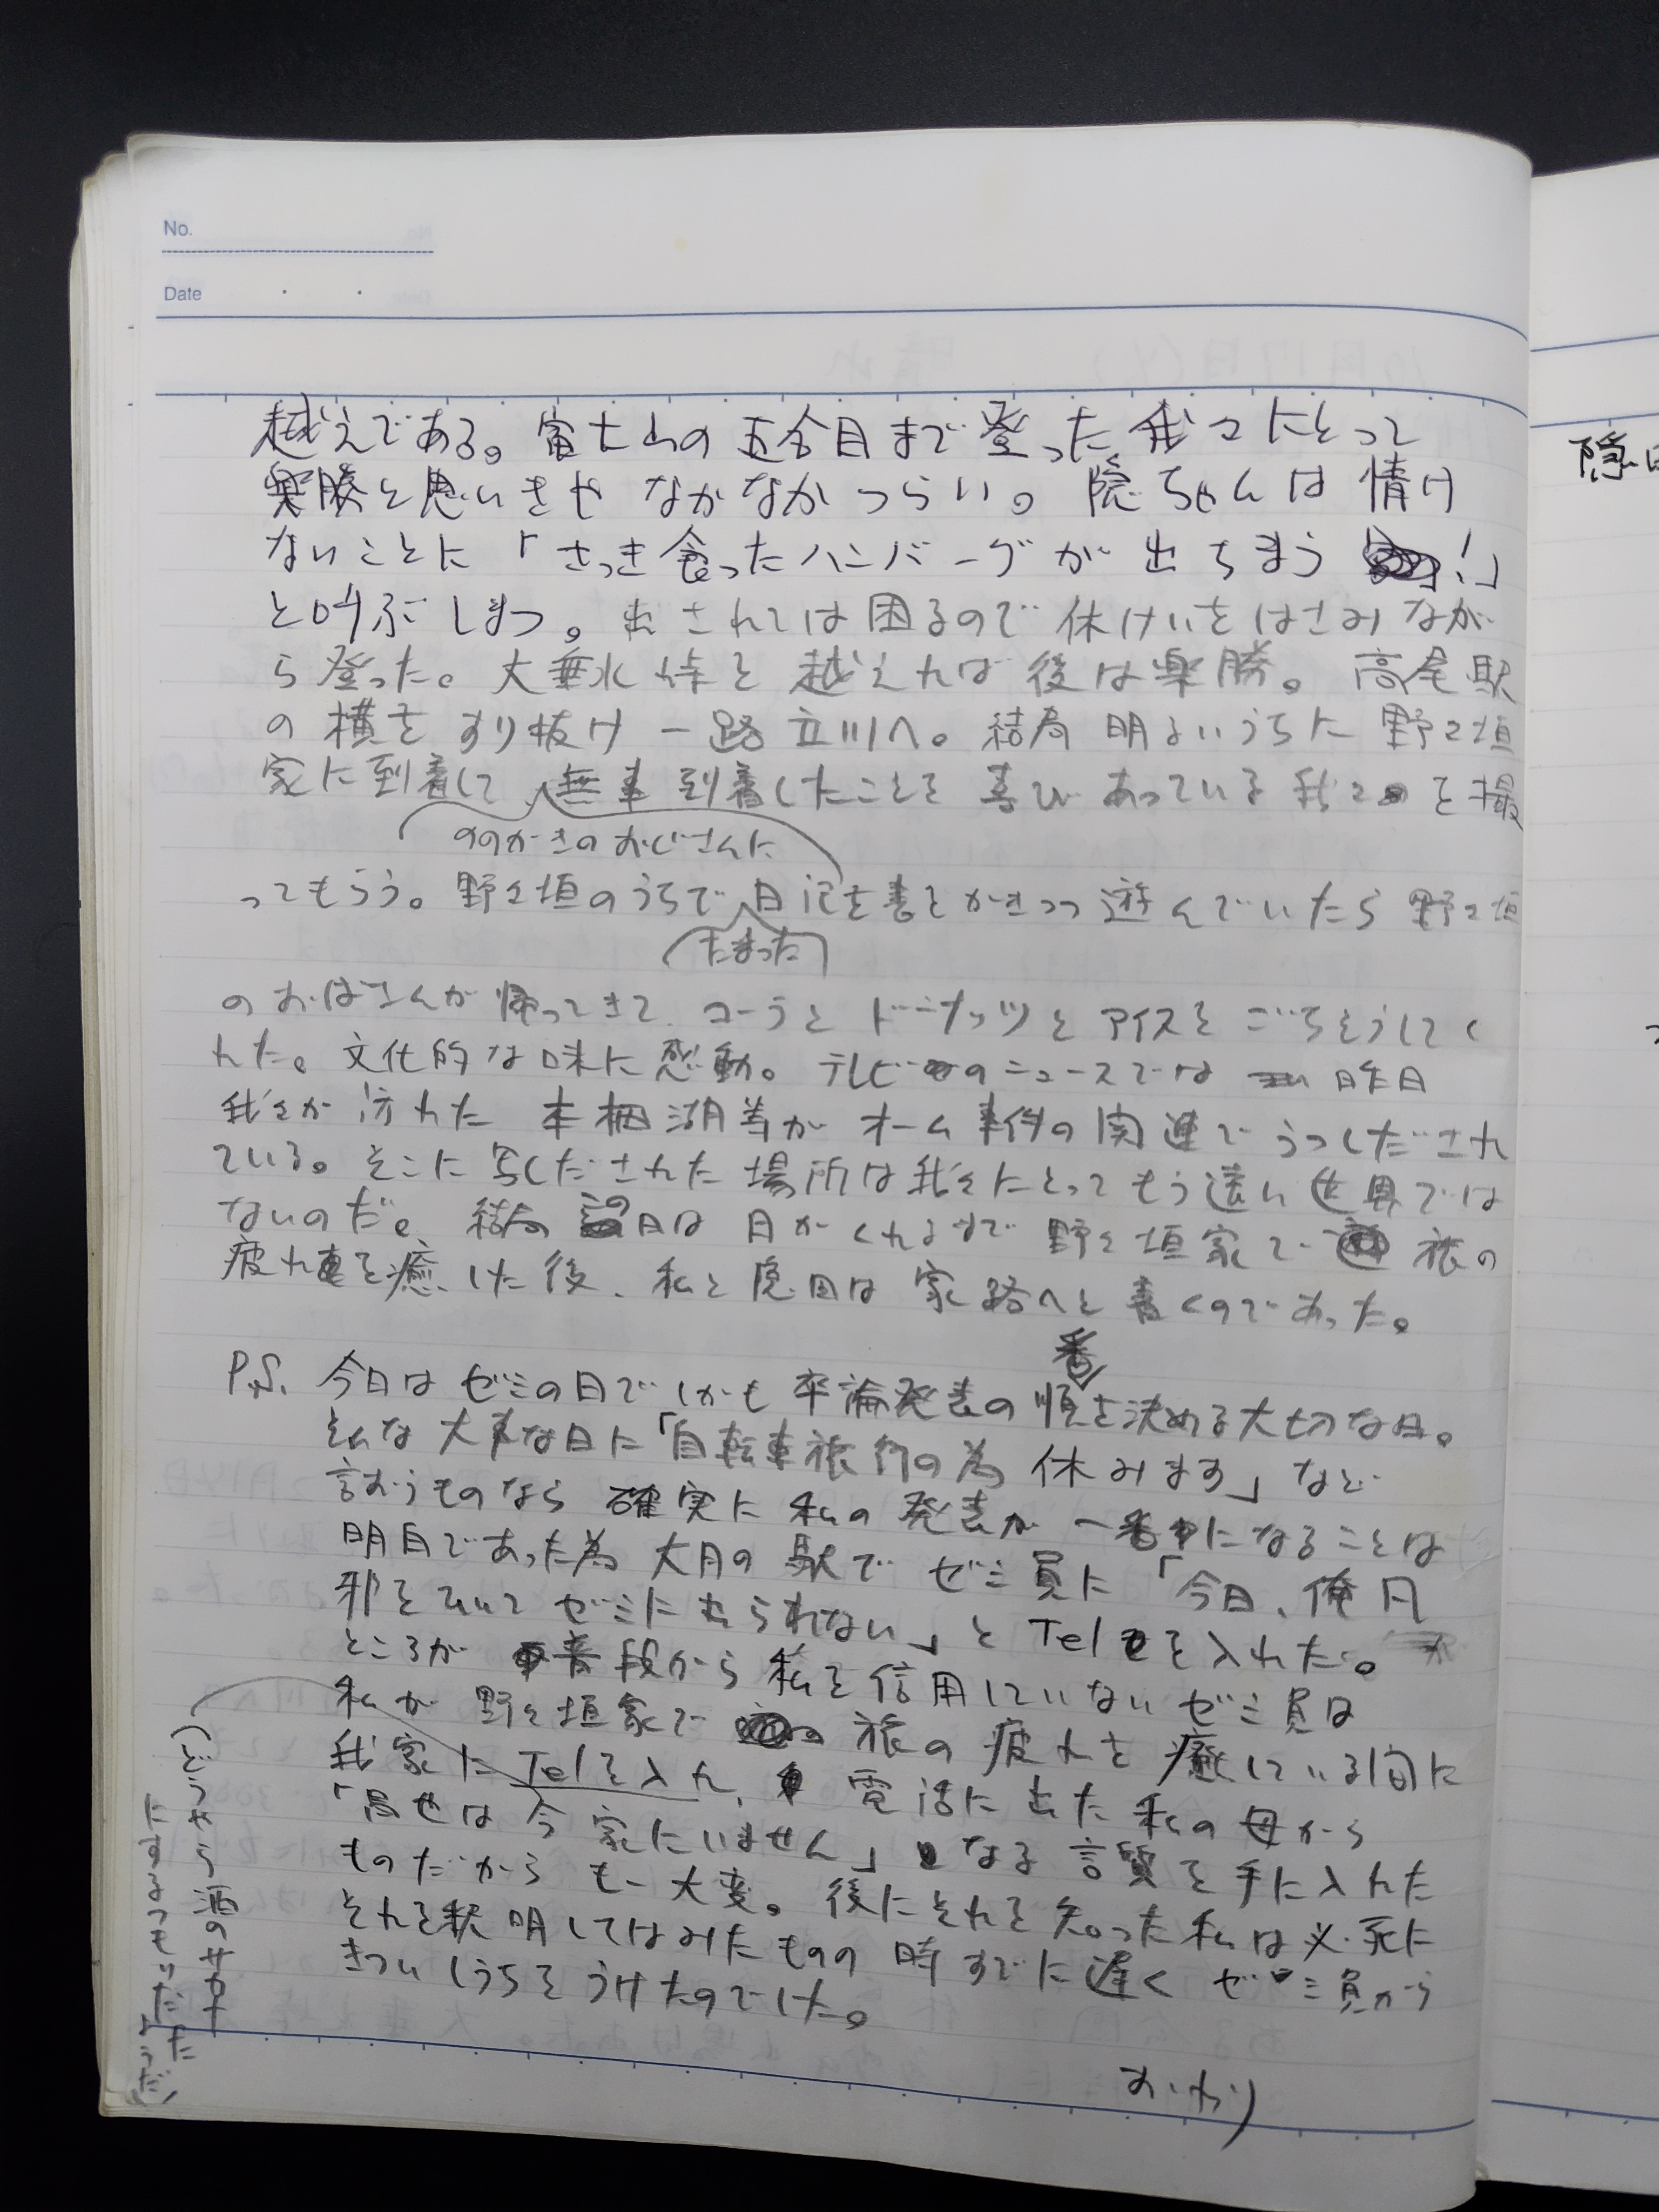 No.
Date
越えである。富士山の五合目まで登った我々にとって
楽勝と思いきや なかなかつらい。隠ちゃんは情け
ないことに「さっき食ったハンバーグが出ちまう!」
と叫ぶしまつ。出されては困るので休けいをはさみなが
ら登った。大垂水峠を越えれば後は楽勝。高尾駅
の横をすり抜け一路立川へ。結局明るいうちに野々垣
家に到着して 無事到着したことを喜びあっている我々を撮
ののがきのおじさんに
ってもらう。野々垣のうちで日記を書きつつ遊んでいたら野々垣
たまった
のおばさんが帰ってきて、コーラとドーナッツとアイスをごちそうしてく
れた。文化的な味に感動。テレビのニュースでは昨日
我々が訪れた本栖湖等がオーム事件の関連でうつしだされ
ている。そこに写しだされた場所は我々にとってもう遠い世界では
ないのだ。結局 日は日がくれるまで野々垣家で旅の
疲れを癒した後、私と隠田は家路へと着くのであった。
P.S. 今日はゼミの日でしかも卒論発表の順番を決める大切な日。
そんな大事な日に「自転車旅行の為休みます」など
言おうものなら確実に私の発表が一番になることは
明白であった為大月の駅でゼミ員に「今日、俺風
邪をひいてゼミに出られない」とTelを入れた。
ところが普段から私を信用していないゼミ員は
私が野々垣家で旅の疲れを癒している間に
我家にTelを入れ、電話に出た私の母から
「昌也は今家にいません」なる言質を手に入れた
ものだからもー大変。後にそれを知った私は必死に
それを釈明してはみたものの時すでに遅くゼミ員から
きついしうちをうけたのでした。
(どうやら酒のサカナ
にするつもりだった
ようだ)
おわり
隠田